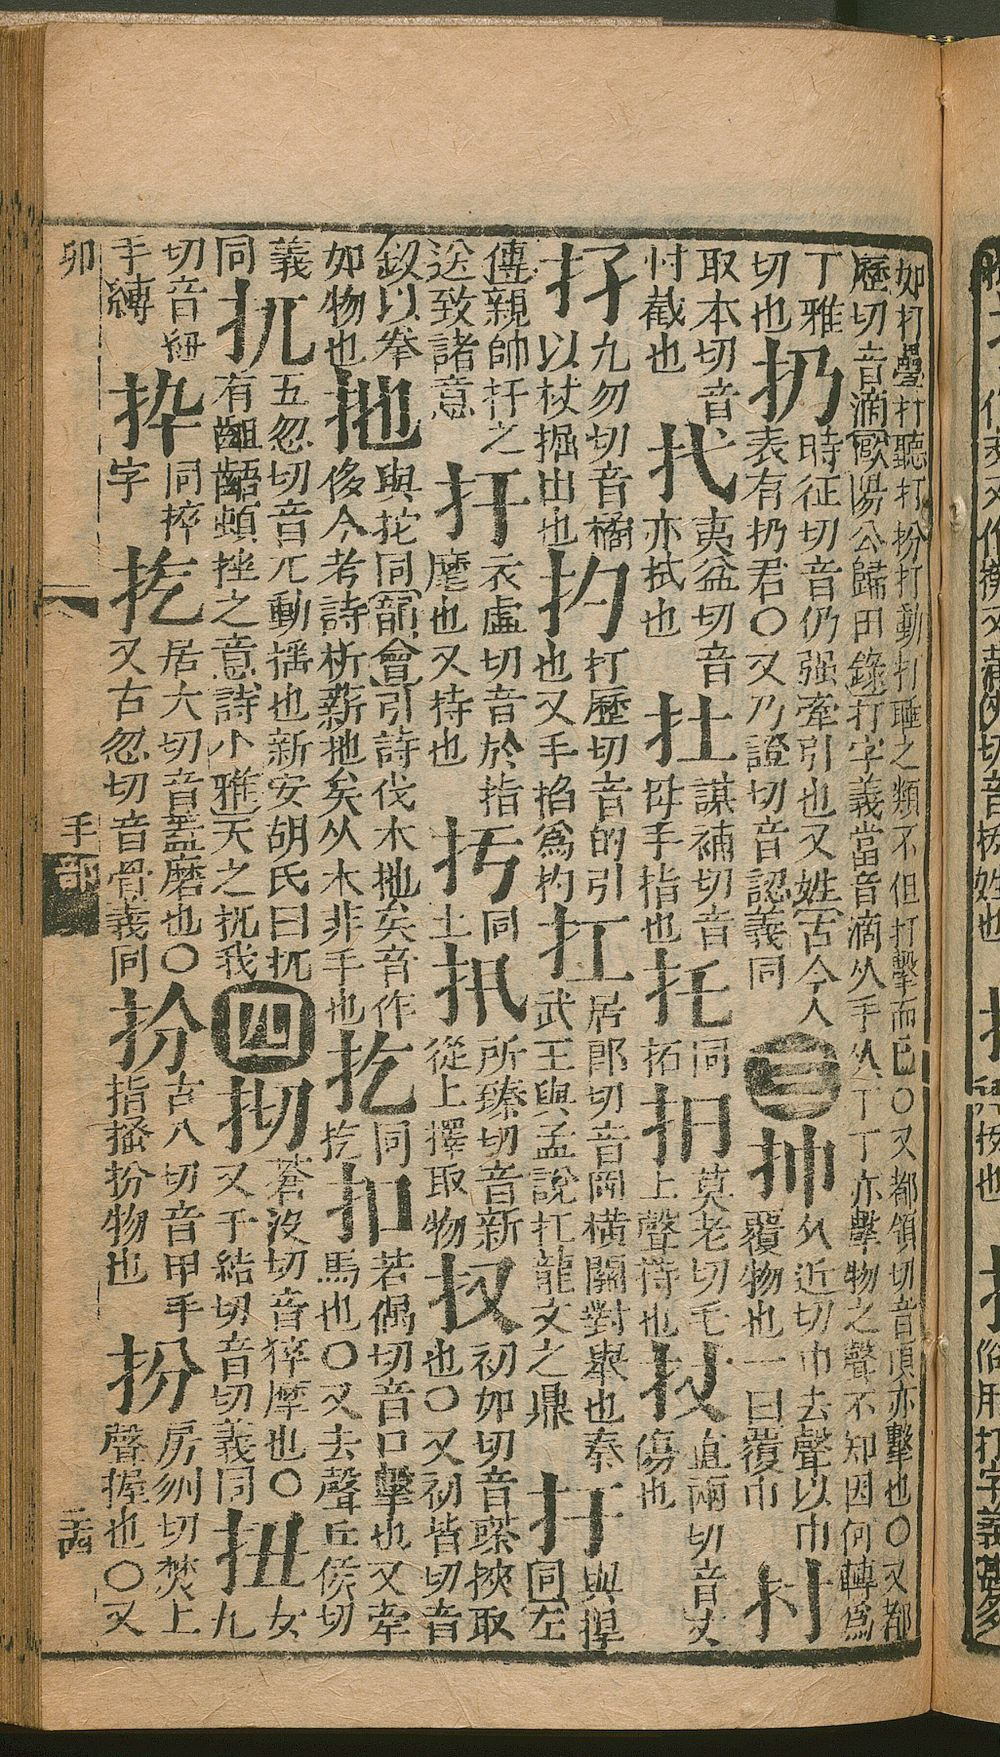 如打疊打聽打扮打動打睡之類不但打擊而已○又都領切音頂亦擊也○又都歷切音滴歐陽公歸田錄打字義當音滴从手从丁丁亦擊物之聲不知因何轉為
丁雅切也扔時征切音仍强牽引也又姓古今人表有扔君○又乃證切音認義同三从近切巾去聲以巾覆物也一曰覆巾
取本切音忖截也夷益切音亦拭也謀補切音母手指也托同拓莫老切毛上聲扙直兩切音丈傷也
九勿切音橘以杖掘出也扚打歷切音的引也又手掐為扚扛居郎切音岡橫關對舉也秦武王與孟說扛龍文之鼎扞與捍同左
傳親帥扞之送致諸意扜衣虛切音於指麾也又持也扝同上扟所臻切音新從上擇取物扠初加切音挾取也○又初皆切音
釵以拳加物也扡與拕同韻會引詩伐木扡矣音作侈今考詩析薪扡矣从木非手也同扢扣若偶切音口擊也又牽馬也○又去聲丘侯切
義同扤五忽切音兀動搖也新安胡氏曰扤有齟齬頓挫之意詩小雅天之扤我四蒼沒切音猝摩也○又千結切音切義同扭女九
切音紐手縛同捽字扢居大切音蓋磨也○又古忽切音骨義同扴古八切音甲手指搔扴物也扮房刎切焚上聲握也○又
卯 手部